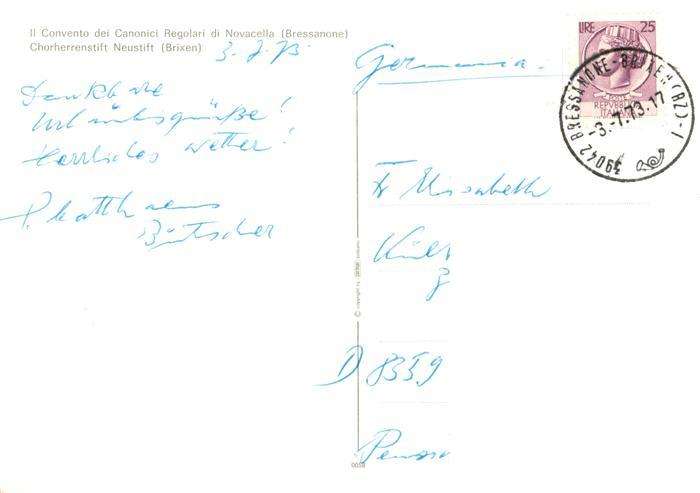 Il Convento dei Canonici Regolari di Novacella (Bressanone)
Chorherrenstift Neustift (Brixen)
3. 7. 73
Dankbare
Urlaubsgrüße!
Herrliches Wetter!
P. Matthaeus
Bütscher
Germania.
LIRE 25
REPUBBLICA
ITALIANA
39042 BRESSANONE-BRIXEN (BZ)-I
-3.-7.73.17
Fr Elisabeth
D 8359
© copyright by
0058